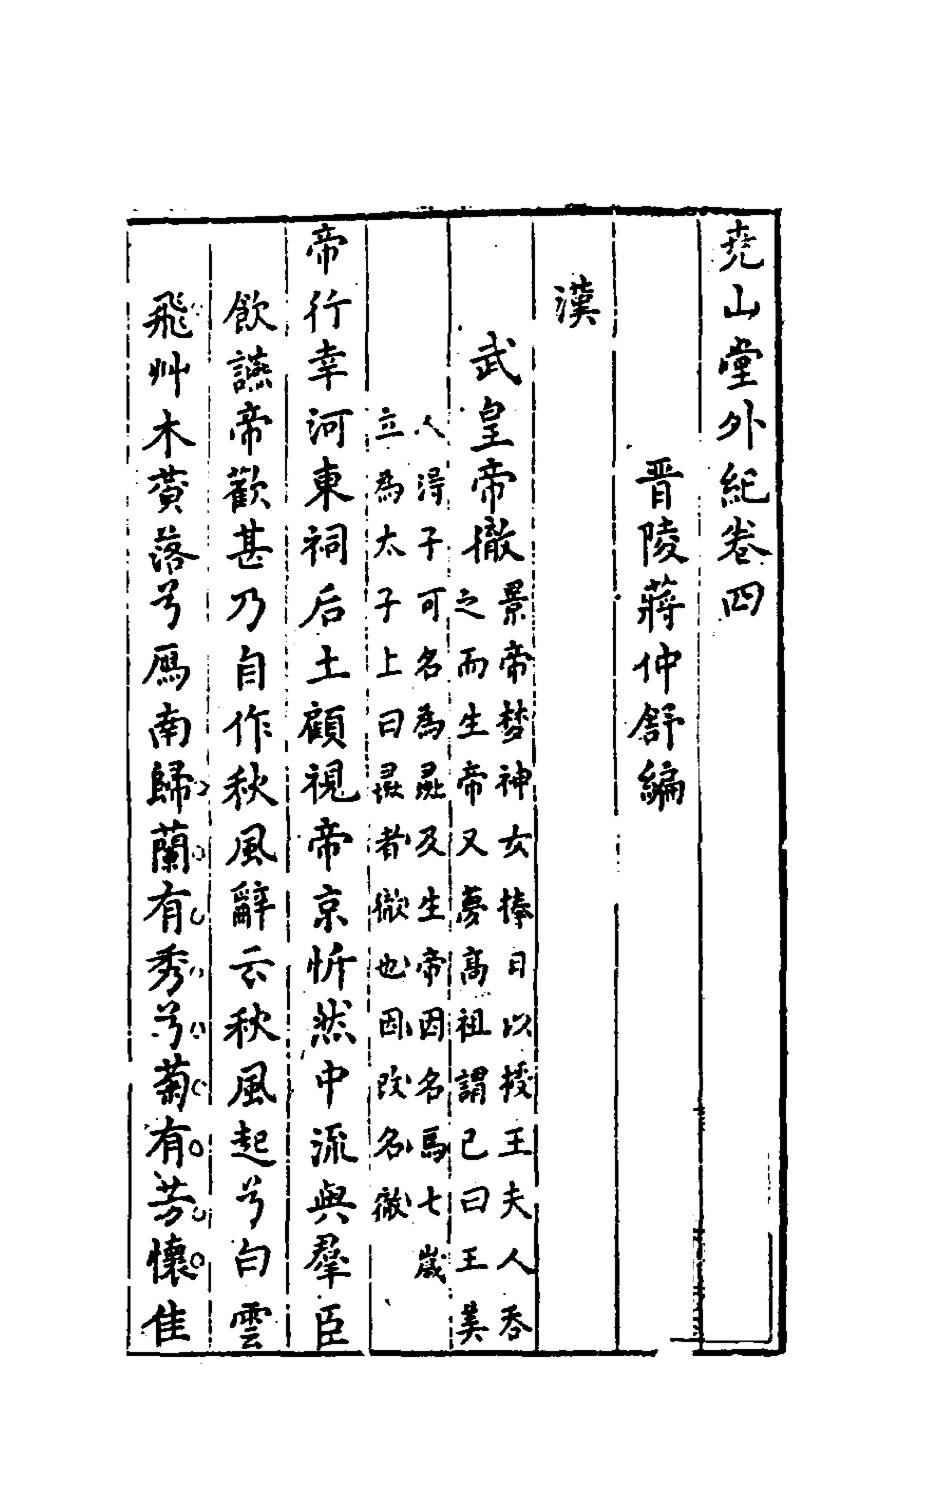 尭山堂外紀卷四
晋陵蔣仲舒編
漢
武皇帝徹
景帝梦神女捧日以授王夫人吞
之而生帝又夢高祖謂己曰王美
人淂子可名為彘及生帝因名焉七歲
立為太子上曰彘者徹也因改名徹
帝行幸河東祠后土顧視帝京忻然中流與羣臣
飲讌帝歡甚乃自作秋風辭云秋風起兮白雲
飛艸木黄落兮鴈南歸蘭有秀兮菊有芳懷佳